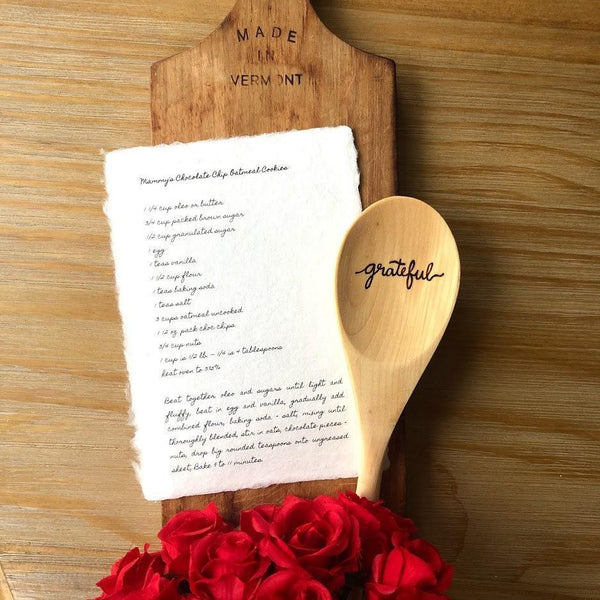 MADE
IN
VERMONT
Mammy's Chocolate Chip Oatmeal Cookies
1 1/4 cup oleo or butter
3/4 cup packed brown sugar
1/2 cup granulated sugar
1 egg
1 teas vanilla
1 1/2 cup flour
1 teas baking soda
1 teas salt
3 cups oatmeal uncooked
1 12 oz. pack choc chips.
3/4 cup nuts
1 cup is 1/2 lb. - 1/4 is 4 tablespoons
heat oven to
Beat together oleo and sugars until light and
fluffy, beat in egg and vanilla, gradually add
combined flour, baking soda + salt, mixing until
thoroughly blended, stir in oats, chocolate pieces +
nuts, drop big rounded teaspoons onto ungreased
sheet, Bake 9 to 11 minutes.
grateful